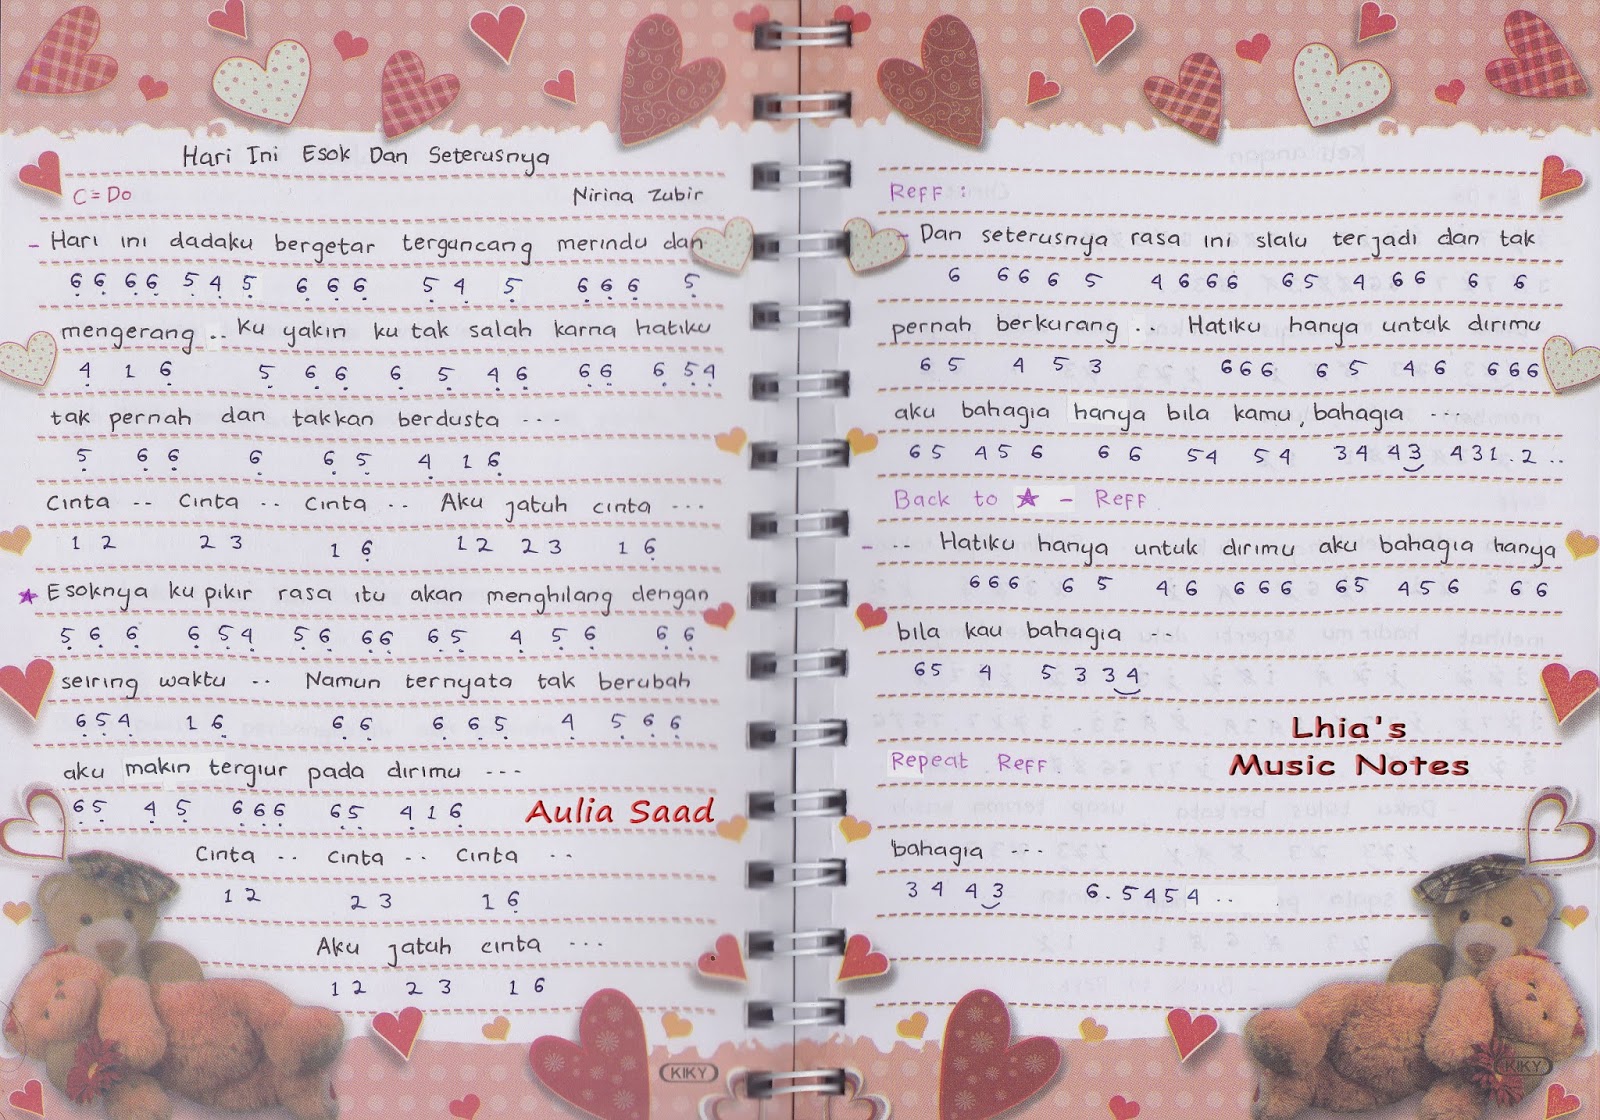 Hari Ini Esok Dan Seterusnya
C = Do Nirina Zubir
- Hari ini dadaku bergetar terguncang merindu dan
6 6 6 6 5 4 5 6 6 6 5 4 5 6 6 6 5
mengerang .. ku yakin ku tak salah karna hatiku
4 1 6 5 6 6 6 5 4 6 6 6 6 5 4
tak pernah dan takkan berdusta ...
5 6 6 6 6 5 4 1 6
Cinta .. Cinta .. Cinta .. Aku jatuh cinta ...
1 2 2 3 1 6 1 2 2 3 1 6
★ Esoknya ku pikir rasa itu akan menghilang dengan
5 6 6 6 5 4 5 6 6 6 6 5 4 5 6 6 6
seiring waktu .. Namun ternyata tak berubah
6 5 4 1 6 6 6 6 6 5 4 5 6 6
aku makin tergiur pada dirimu ...
6 5 4 5 6 6 6 6 5 4 1 6
Aulia Saad
Cinta .. cinta .. cinta ..
1 2 2 3 1 6
Aku jatuh cinta ...
1 2 2 3 1 6
KIKY
Reff :
- Dan seterusnya rasa ini slalu terjadi dan tak
6 6 6 6 5 4 6 6 6 6 5 4 6 6 6 6
pernah berkurang .. Hatiku hanya untuk dirimu
6 5 4 5 3 6 6 6 6 5 4 6 6 6 6
aku bahagia hanya bila kamu, bahagia ...
6 5 4 5 6 6 6 5 4 5 4 3 4 4 3 4 3 1 . 2 ..
Back to ★ - Reff
- .. Hatiku hanya untuk dirimu aku bahagia hanya
6 6 6 6 5 4 6 6 6 6 6 5 4 5 6 6 6
bila kau bahagia ..
6 5 4 5 3 3 4
Lhia's
Music Notes
Repeat Reff.
bahagia ...
3 4 4 3 6 . 5 4 5 4 ..
KIKY